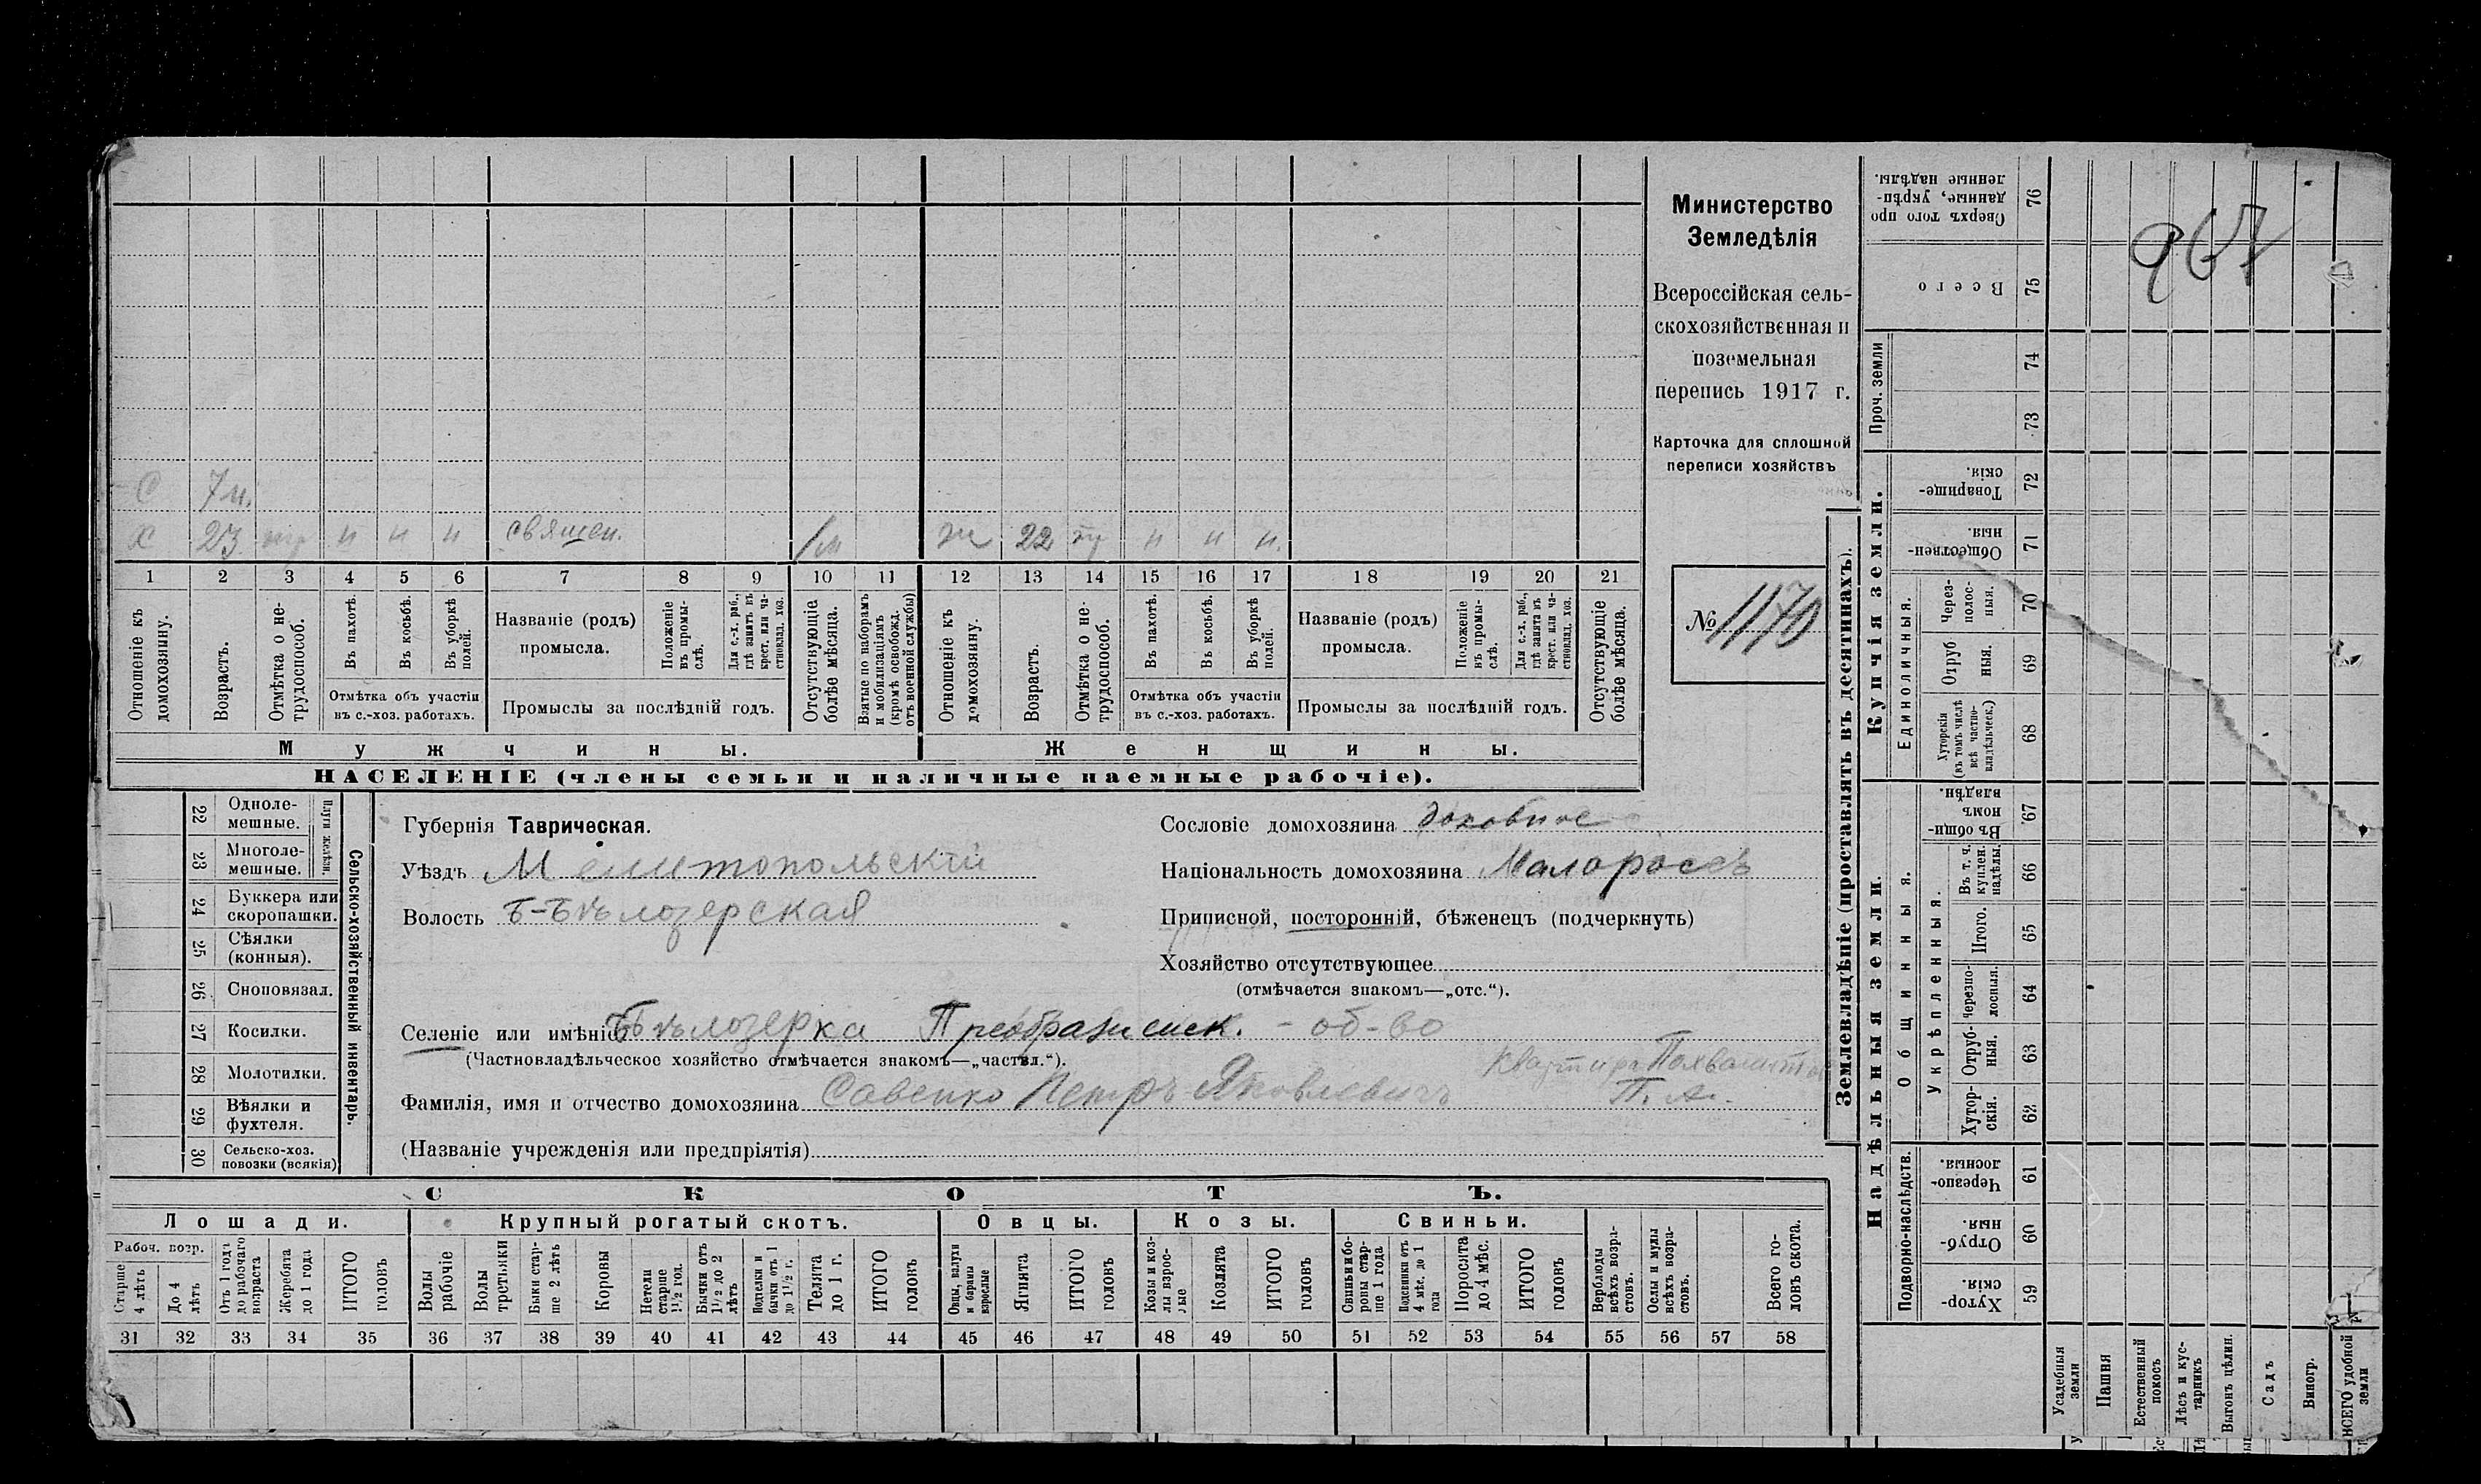 967
Министерство
Земледѣлія
Всероссійская сель-
скохозяйственная и
поземельная
перепись 1917 г.
Карточка для сплошной
переписи хозяйствъ
№ 1170
С 7 м.
Х 23 н н н священ. ж 22 н н н
1 2 3 4 5 6 7 8 9 10 11 12 13 14 15 16 17 18 19 20 21
Отношеніе къ домохозяину.
Возрастъ.
Отмѣтка о не-трудоспособ.
Въ пахотѣ.
Въ косьбѣ.
Въ уборкѣ полей.
Отмѣтка объ участіи
въ с.-хоз. работахъ.
Названіе (родъ)
промысла.
Положеніе въ промы-слѣ.
Для с.-х. раб., гдѣ занятъ въ крест. или ча-стновлад. хоз.
Промыслы за послѣдній годъ.
Отсутствующіе болѣе мѣсяца.
Взятые по наборамъ и мобилизаціямъ (кромѣ освобожд. отъ военной службы)
Отношеніе къ домохозяину.
Возрастъ.
Отмѣтка о не-трудоспособ.
Въ пахотѣ.
Въ косьбѣ.
Въ уборкѣ полей.
Отмѣтка объ участіи
въ с.-хоз. работахъ.
Названіе (родъ)
промысла.
Положеніе въ промы-слѣ.
Для с.-х. раб., гдѣ занята въ крест. или ча-стновлад. хоз.
Промыслы за послѣдній годъ.
Отсутствующіе болѣе мѣсяца.
Мужчины. Женщины.
НАСЕЛЕНІЕ (члены семьи и наличные наемные рабочіе).
Сельско-хозяйственный инвентарь.
Плуги желѣзн.
22 Одноле-мешные.
23 Многоле-мешные.
24 Буккера или скоропашки.
25 Сѣялки (конныя).
26 Сноповязал.
27 Косилки.
28 Молотилки.
29 Вѣялки и фухтеля.
30 Сельско-хоз. повозки (всякія)
Губернія Таврическая.
Уѣздъ Мелитопольскій
Волость Б-Бѣлозерская
Сословіе домохозяина духовное
Національность домохозяина Малороссъ
Приписной, посторонній, бѣженецъ (подчеркнуть)
Хозяйство отсутствующее
(отмѣчается знакомъ—„отс.“).
Селеніе или имѣніе Б Бѣлозерка Преображенск. - об-во
(Частновладѣльческое хозяйство отмѣчается знакомъ—„частвл.“).
Квартира
П. А.
Фамилія, имя и отчество домохозяина Савенко Петръ Яковлевичъ
(Названіе учрежденія или предпріятія)
СКОТЪ.
Лошади. Крупный рогатый скотъ. Овцы. Козы. Свиньи.
Рабоч. возр.
Старше 4 лѣтъ
До 4 лѣтъ
Отъ 1 года до рабочаго возраста
Жеребята до 1 года
ИТОГО головъ
Волы рабочіе
Волы третьяки
Быки стар-ше 2 лѣтъ
Коровы
Нетели старше 1½ год.
Бычки отъ 1½ до 2 лѣтъ
Подтелки и бычки отъ 1 до 1½ г.
Телята до 1 г.
ИТОГО головъ
Овцы, валухи и бараны взрослые
Ягнята
ИТОГО головъ
Козы и коз-лы взрос-лые
Козлята
ИТОГО головъ
Свиньи и бо-ровы стар-ше 1 года
Подсвинки отъ 4 мѣс. до 1 года
Поросята до 4 мѣс.
ИТОГО головъ
Верблюды всѣхъ возра-стовъ.
Ослы и мулы всѣхъ возра-стовъ.
Всего го-ловъ скота.
31 32 33 34 35 36 37 38 39 40 41 42 43 44 45 46 47 48 49 50 51 52 53 54 55 56 57 58
Землевладѣніе (проставлять въ десятинахъ).
Купчія земли.
Надѣльныя земли.
Сверхъ того про данные, укрѣп-ленные надѣлы. 76
Всего 75
Проч. земли
74
73
Товарище-скія. 72
Обществен-ныя 71
Единоличныя.
Через-полос-ныя. 70
Отруб ныя. 69
Хуторскія (въ томъ числѣ всѣ частно-владѣльческ.) 68
Общинныя.
Въ общи-номъ владѣн. 67
Укрѣпленныя.
Въ т. ч. куплен. надѣлы. 66
Итого. 65
Черезпо-лосныя. 64
Отруб-ныя. 63
Хутор-скія. 62
Подворно-наслѣдств.
Черезпо-лосныя. 61
Отруб-ныя. 60
Хутор-скія. 59
Усадебныя земли
Пашня
Естественный покосъ
Лѣсъ и кус-тарникъ
Выгонъ цѣлин.
Садъ
Виногр.
ВСЕГО удобной земли